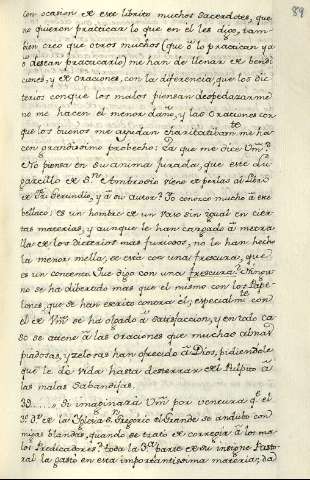 89
con ocasion de este librito muchos Sacerdotes, que
no quieren practicar lo que en el les digo, tam-
bien creo que otros muchos (que ô lo practican ya
ô desean practicarlo) me han de llenar de bendi-
ciones, y de oraciones, con la diferencia, que los dic-
terios con que los malos piensan despedazarme
no me hacen el menor daño, y las oraciones con
que los buenos me ayudan charitativam.te me ha-
cen grandissimo probecho: Ya que me dice Vm.d
No piensa en su anima jurada, que este
pargcillo de S.n Ambrosio viene de perlas al Libro
de Fr. Gerundio, y â su autor? Yo conozco mucho â ese
bellaco; es un hombre de un raro sin igual en cier-
tas materias, y aunque le han cargado â metra-
lla de los dicterios mas furiosos, no le han hecho
la menor mella, se està con una frescura, que
es un contento. Que digo con una frescura? Ningu
no se ha divertido mas que el mismo con los Pape-
lones, que se han escrito contra el, y especialm.te con
el de Vm.d se ha olgado â satisfaccion, y en todo ca
so se atiene â las oraciones que muchas almas
piadosas, y zelosas han ofrecido â Dios, pidiendole
que le de vida hasta desterrar del Pulpito â
las malas Sabandijas.
39. Si imaginarà Vm.d por ventura q.e el
D.r de la Iglesia S.n Gregorio el Grande se anduvo con
mijas blandas, quando se tratò de corregir â los ma-
los Predicadores? toda la 3.a parte de su insigne Pasto-
ral la gastò en esta importantissima materia; da